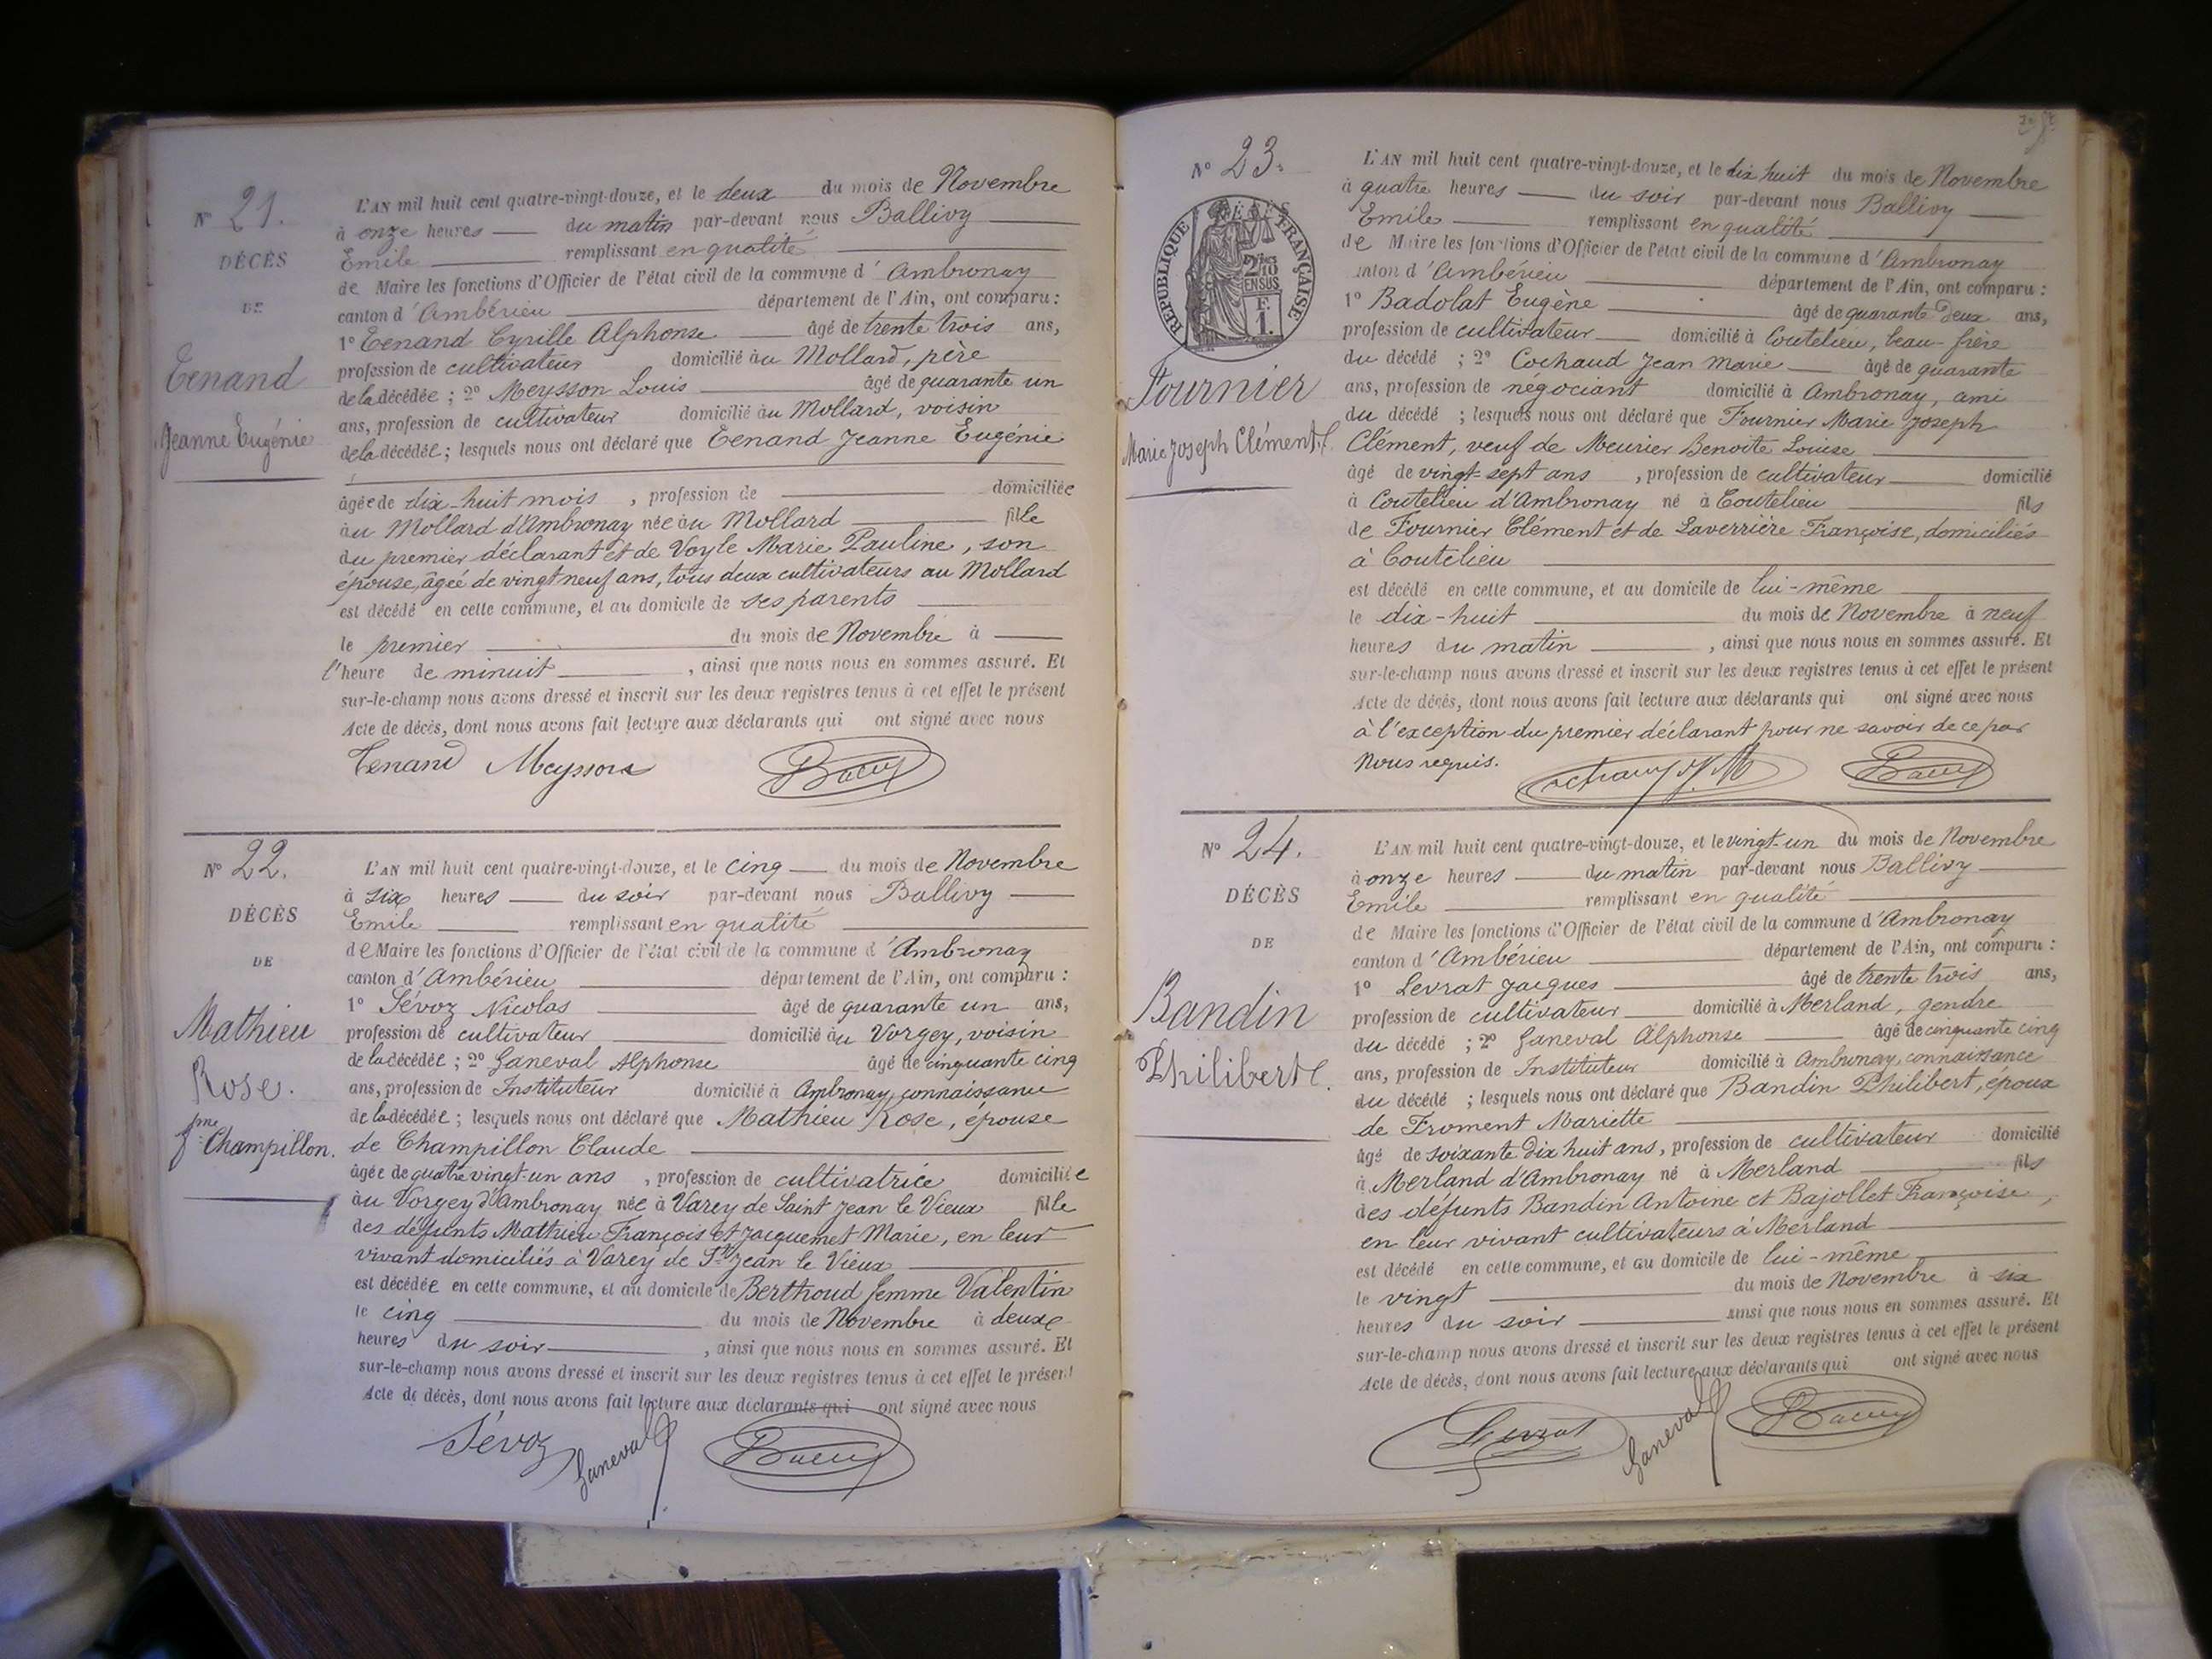 N° 21.
DÉCÈS
DE
Tenand
Jeanne Eugénie
L'AN mil huit cent quatre-vingt-douze, et le deux du mois de Novembre
à onze heures du matin par-devant nous Ballivy
Emile remplissant en qualité
de Maire les fonctions d'Officier de l'état civil de la commune d'Ambronay
canton d'Ambérieu département de l'Ain, ont comparu :
1° Tenand Cyrille Alphonse âgé de trente trois ans,
profession de cultivateur domicilié au Mollard, père
de la décédée ; 2° Meysson Louis âgé de quarante un
ans, profession de cultivateur domicilié au Mollard, voisin
de la décédée ; lesquels nous ont déclaré que Tenand Jeanne Eugénie
âgée de dix-huit mois , profession de domiciliée
au Mollard d'Ambronay née au Mollard fille
du premier déclarant et de Voyle Marie Pauline, son
épouse, âgée de vingt neuf ans, tous deux cultivateurs au Mollard
est décédé en cette commune, et au domicile de ses parents
le premier du mois de Novembre à
l'heure de minuit , ainsi que nous nous en sommes assuré. Et
sur-le-champ nous avons dressé et inscrit sur les deux registres tenus à cet effet le présent
Acte de décès, dont nous avons fait lecture aux déclarants qui ont signé avec nous
Tenand Meysson
N° 22.
DÉCÈS
DE
Mathieu
Rose.
fme Champillon.
L'AN mil huit cent quatre-vingt-douze, et le cinq du mois de Novembre
à six heures du soir par-devant nous Ballivy
Emile remplissant en qualité
de Maire les fonctions d'Officier de l'état civil de la commune d'Ambronay
canton d'Ambérieu département de l'Ain, ont comparu :
1° Sévoz Nicolas âgé de quarante un ans,
profession de cultivateur domicilié au Vorgey, voisin
de la décédée ; 2° Janeval Alphonse âgé de cinquante cinq
ans, profession de Instituteur domicilié à Ambronay, connaissance
de la décédée ; lesquels nous ont déclaré que Mathieu Rose, épouse
de Champillon Claude
âgée de quatre vingt-un ans , profession de cultivatrice domiciliée
au Vorgey d'Ambronay née à Varey de Saint Jean le Vieux fille
des défunts Mathieu François et Jacquemet Marie, en leur
vivant domiciliés à Varey de St Jean le Vieux
est décédée en cette commune, et au domicile de Berthoud femme Valentin
le cinq du mois de Novembre à deux
heures du soir , ainsi que nous nous en sommes assuré. Et
sur-le-champ nous avons dressé et inscrit sur les deux registres tenus à cet effet le présent
Acte de décès, dont nous avons fait lecture aux déclarants qui ont signé avec nous
Sévoz Janeval
N° 23.
RÉPUBLIQUE FRANÇAISE
2/10 EN SUS
F. 1.
Fournier
Marie Joseph Clément
L'AN mil huit cent quatre-vingt-douze, et le dix huit du mois de Novembre
à quatre heures du soir par-devant nous Ballivy
Emile remplissant en qualité
de Maire les fonctions d'Officier de l'état civil de la commune d'Ambronay
canton d'Ambérieu département de l'Ain, ont comparu :
1° Badolat Eugène âgé de quarante deux ans,
profession de cultivateur domicilié à Coutelieu, beau-frère
du décédé ; 2° Cochaud Jean Marie âgé de quarante
ans, profession de négociant domicilié à Ambronay, ami
du décédé ; lesquels nous ont déclaré que Fournier Marie Joseph
Clément, veuf de Meurier Benoîte Louise
âgé de vingt-sept ans , profession de cultivateur domicilié
à Coutelieu d'Ambronay né à Coutelieu fils
de Fournier Clément et de Laverrière Françoise, domiciliés
à Coutelieu
est décédé en cette commune, et au domicile de lui-même
le dix-huit du mois de Novembre à neuf
heures du matin , ainsi que nous nous en sommes assuré. Et
sur-le-champ nous avons dressé et inscrit sur les deux registres tenus à cet effet le présent
Acte de décès, dont nous avons fait lecture aux déclarants qui ont signé avec nous
à l'exception du premier déclarant pour ne savoir de ce par
nous requis.
N° 24.
DÉCÈS
DE
Bandin
Philibert
L'AN mil huit cent quatre-vingt-douze, et le vingt-un du mois de Novembre
à onze heures du matin par-devant nous Ballivy
Emile remplissant en qualité
de Maire les fonctions d'Officier de l'état civil de la commune d'Ambronay
canton d'Ambérieu département de l'Ain, ont comparu :
1° Levrat Jacques âgé de trente trois ans,
profession de cultivateur domicilié à Merland, gendre
du décédé ; 2° Janeval Alphonse âgé de cinquante cinq
ans, profession de Instituteur domicilié à Ambronay, connaissance
du décédé ; lesquels nous ont déclaré que Bandin Philibert, époux
de Froment Mariette
âgé de soixante dix huit ans, profession de cultivateur domicilié
à Merland d'Ambronay né à Merland fils
des défunts Bandin Antoine et Bajollet Françoise,
en leur vivant cultivateurs à Merland
est décédé en cette commune, et au domicile de lui-même
le vingt du mois de Novembre à six
heures du soir ainsi que nous nous en sommes assuré. Et
sur-le-champ nous avons dressé et inscrit sur les deux registres tenus à cet effet le présent
Acte de décès, dont nous avons fait lecture aux déclarants qui ont signé avec nous
Levrat Janeval